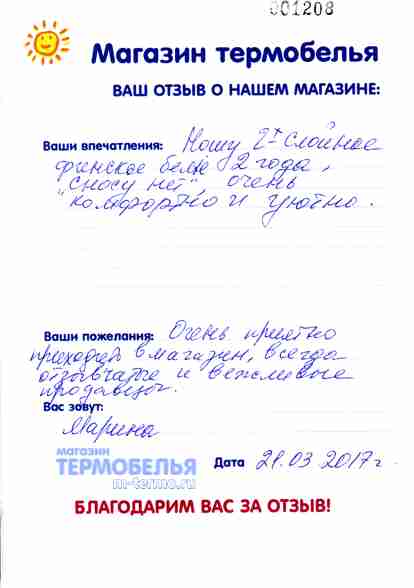 001208
Магазин термобелья
ВАШ ОТЗЫВ О НАШЕМ МАГАЗИНЕ:
Ваши впечатления: Ношу 2х слойное
финское белье 2 года,
"сносу нет", очень
комфортно и уютно.
Ваши пожелания: Очень приятно
приходить в магазин, всегда
отзывчатые и вежливые
продавцы.
Вас зовут:
Марина
магазин
ТЕРМОБЕЛЬЯ
m-termo.ru
Дата 21.03 2017г.
БЛАГОДАРИМ ВАС ЗА ОТЗЫВ!